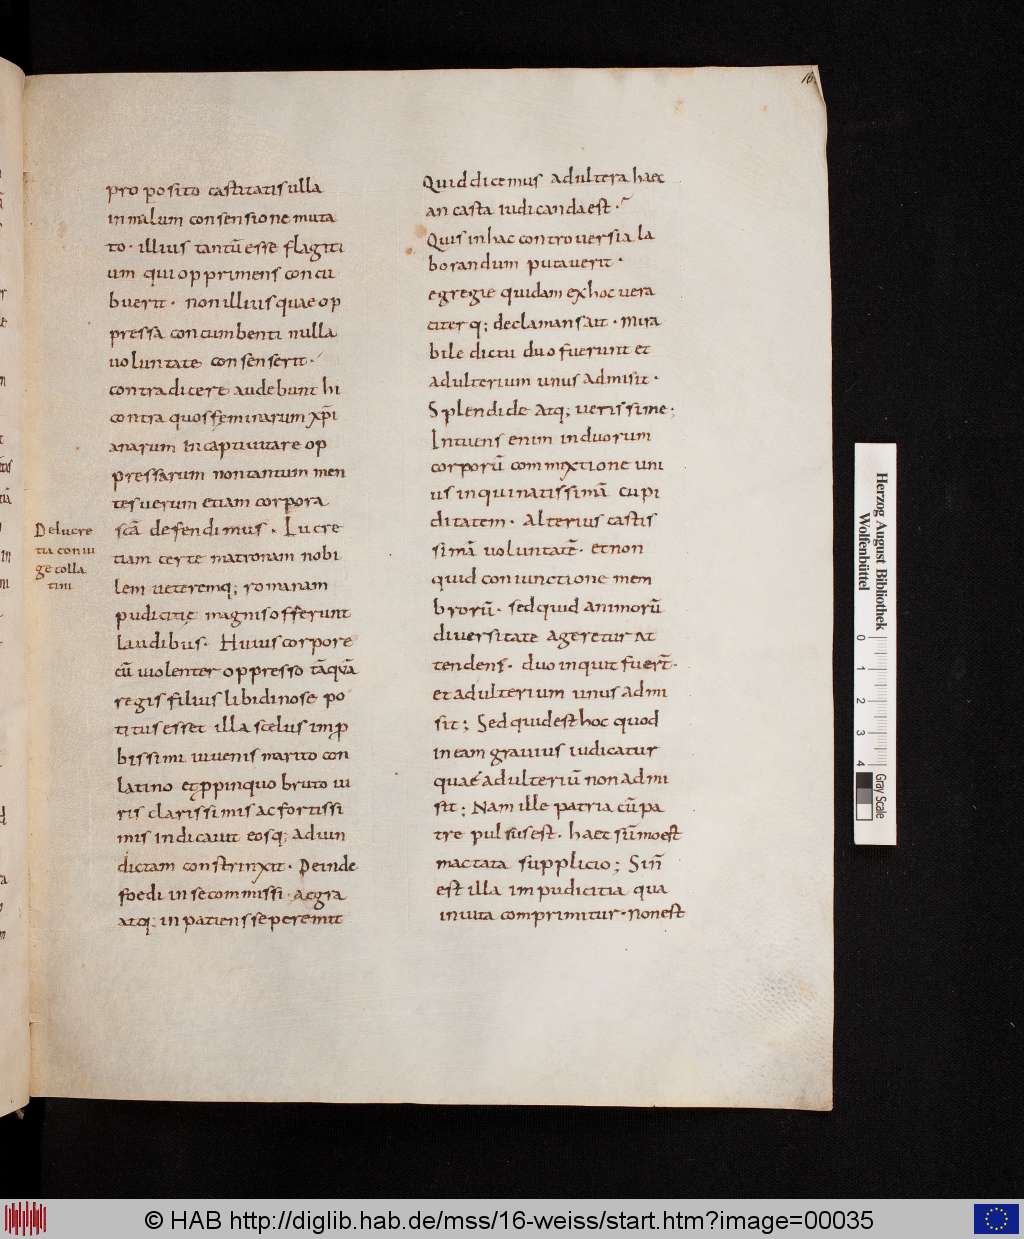 10
pro posito castitatis ulla
in malum consensione muta
to · illius tantū esse flagiti
um qui opprimens concu
buerit · non illius quae op
pressa concumbenti nulla
uoluntate consenserit ·
contradicere audebunt hi
contra quos feminarum xp̄i
anarum in captiuitate op
pressarum non tantum men
tes uerum etiam corpora
scā defendimus · Lucre
tiam certe matronam nobi
lem ueteremq; romanam
pudicitię magnis offerunt
laudibus · Huius corpore
cū uiolenter oppresso tāquā
regis filius libidinose po
titus esset illa scelus imp
bissimi iuuenis marito con
latino et ppinquo bruto ui
ris clarissimis ac fortissi
mis indicauit eosq; ad uin
dictam constrinxit · Deinde
foedi in se commissi · aegra
atq; inpatiens se peremit
De lucre
tia coniu
ge colla
tini
Quid dicemus adultera haec
an casta iudicanda est ·
Quis in hac controuersia la
borandum putauerit ·
egregie quidam ex hoc uera
citerq; declamans ait · mira
bile dictu duo fuerunt et
adulterium unus admisit ·
Splendide atq; uerissime ;
Intuens enim in duorum
corporū commixtione uni
us inquinatissimā cupi
ditatem · Alterius castis
simā uoluntatē · et non
quid coniunctione mem
brorū · sed quid animorū
diuersitate ageretur at
tendens · duo inquit fuerṫ ·
et adulterium unus admi
sit ; Sed quid est hoc quod
in eam grauius iudicatur
quae adulteriū non admi
sit ; Nam ille patria cū pa
tre pulsus est · haec sūmo est
mactata supplicio ; Si n̄
est illa impudicitia qua
inuita comprimitur · non est
Herzog August Bibliothek
Wolfenbüttel
0 1 2 3 4
Gray Scale
© HAB http://diglib.hab.de/mss/16-weiss/start.htm?image=00035